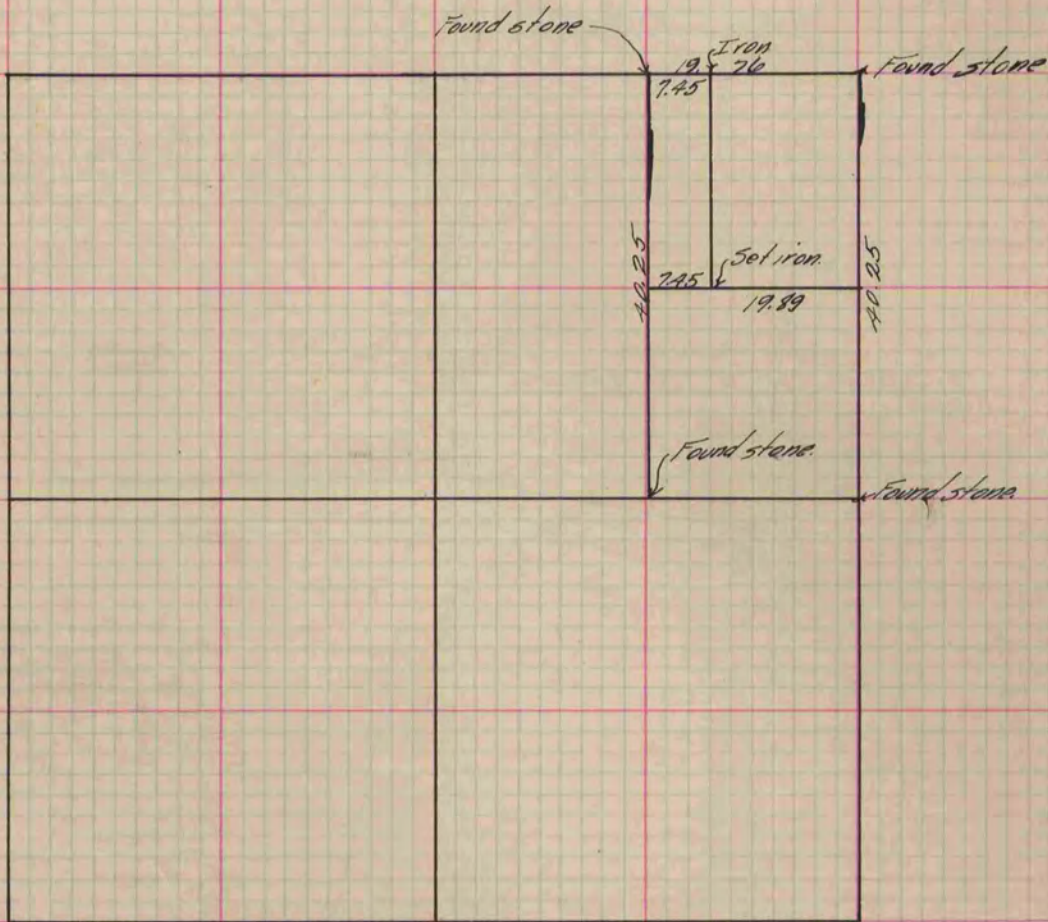 Found stone
Iron
19. 76
Found stone
7.45
40.25
40.25
Set iron.
7.45
19.89
Found stone.
Found stone.